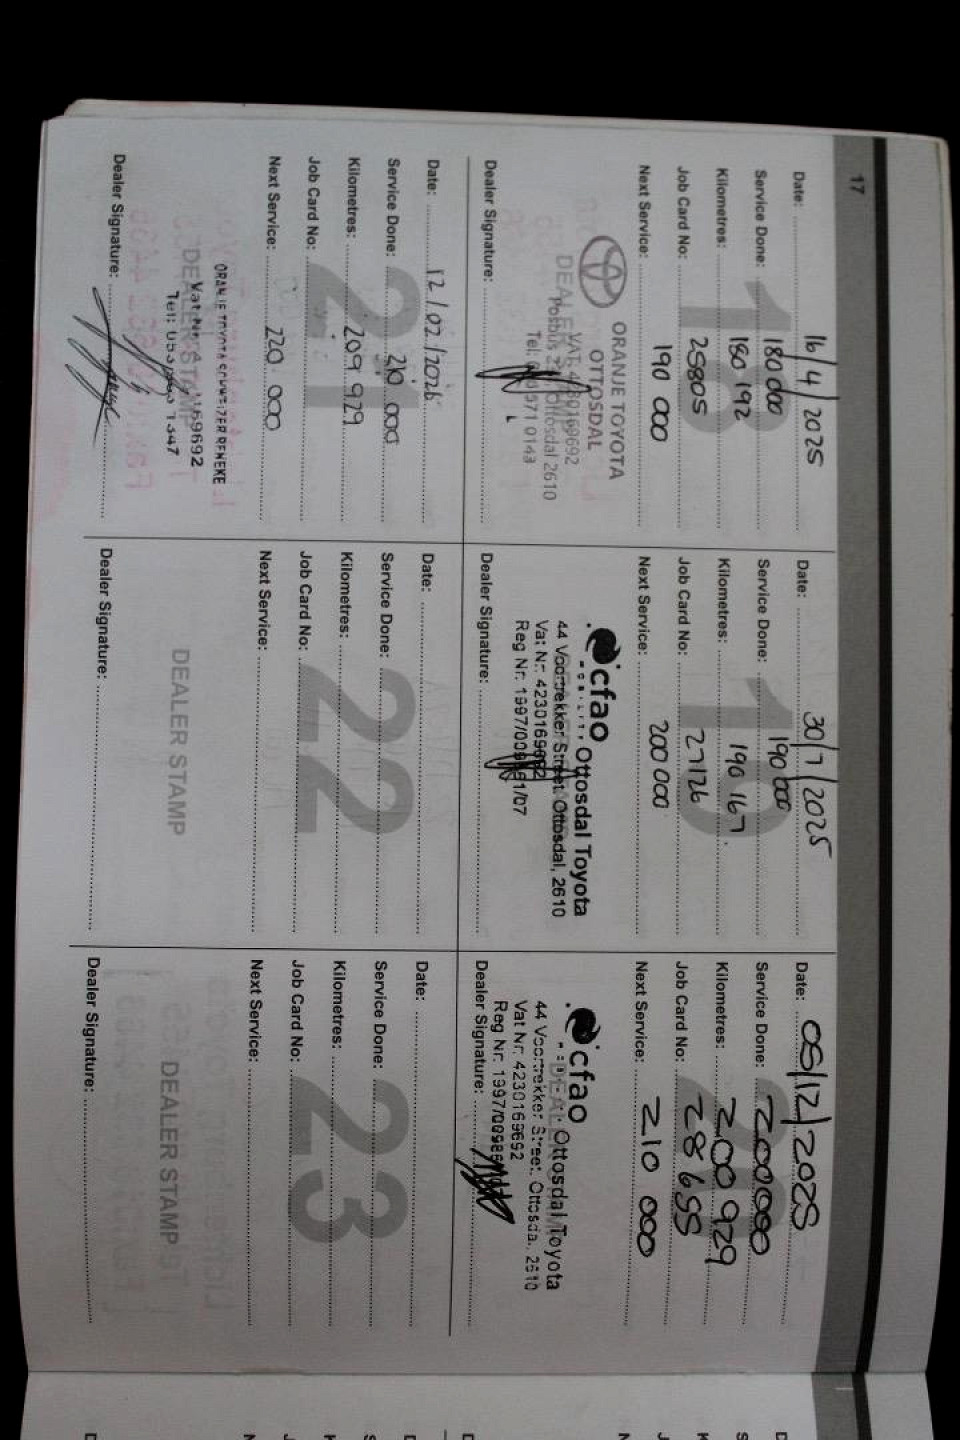 17
Date: 16/4/2025
Service Done: 180 000
Kilometres: 180 192
Job Card No: 25805
Next Service: 190 000
18
ORANJE TOYOTA
OTTOSDAL
VAT 4230169692
Ottosdal 2610
Tel: 571 0143
DEALER
Dealer Signature:
Date: 30/7/2025
Service Done: 190 000
Kilometres: 190 167
Job Card No: 27126
Next Service: 200 000
19
cfao
MOBILITY Ottosdal Toyota
44 Voortrekker Street Ottosdal, 2610
Vat Nr: 4230169692
Reg Nr: 1997/009861/07
Dealer Signature:
Date: 05/12/2025
Service Done: 200 000
Kilometres: 200 929
Job Card No: 28655
Next Service: 210 000
cfao
Ottosdal Toyota
44 Voortrekker Street, Ottosdal, 2610
Vat Nr. 4230169692
Reg Nr. 1997/
Dealer Signature:
Date: 12/02/2026
Service Done: 210 000
Kilometres: 209 929
Job Card No:
Next Service: 220 000
21
ORANJE TOYOTA SCHWEIZER RENEKE
DEALER STAMP
Vat Nr: 169692
Tel: 1347
Dealer Signature:
Date:
Service Done:
Kilometres:
Job Card No:
Next Service:
22
DEALER STAMP
Dealer Signature:
Date:
Service Done:
Kilometres:
Job Card No:
Next Service:
23
DEALER STAMP
Dealer Signature: